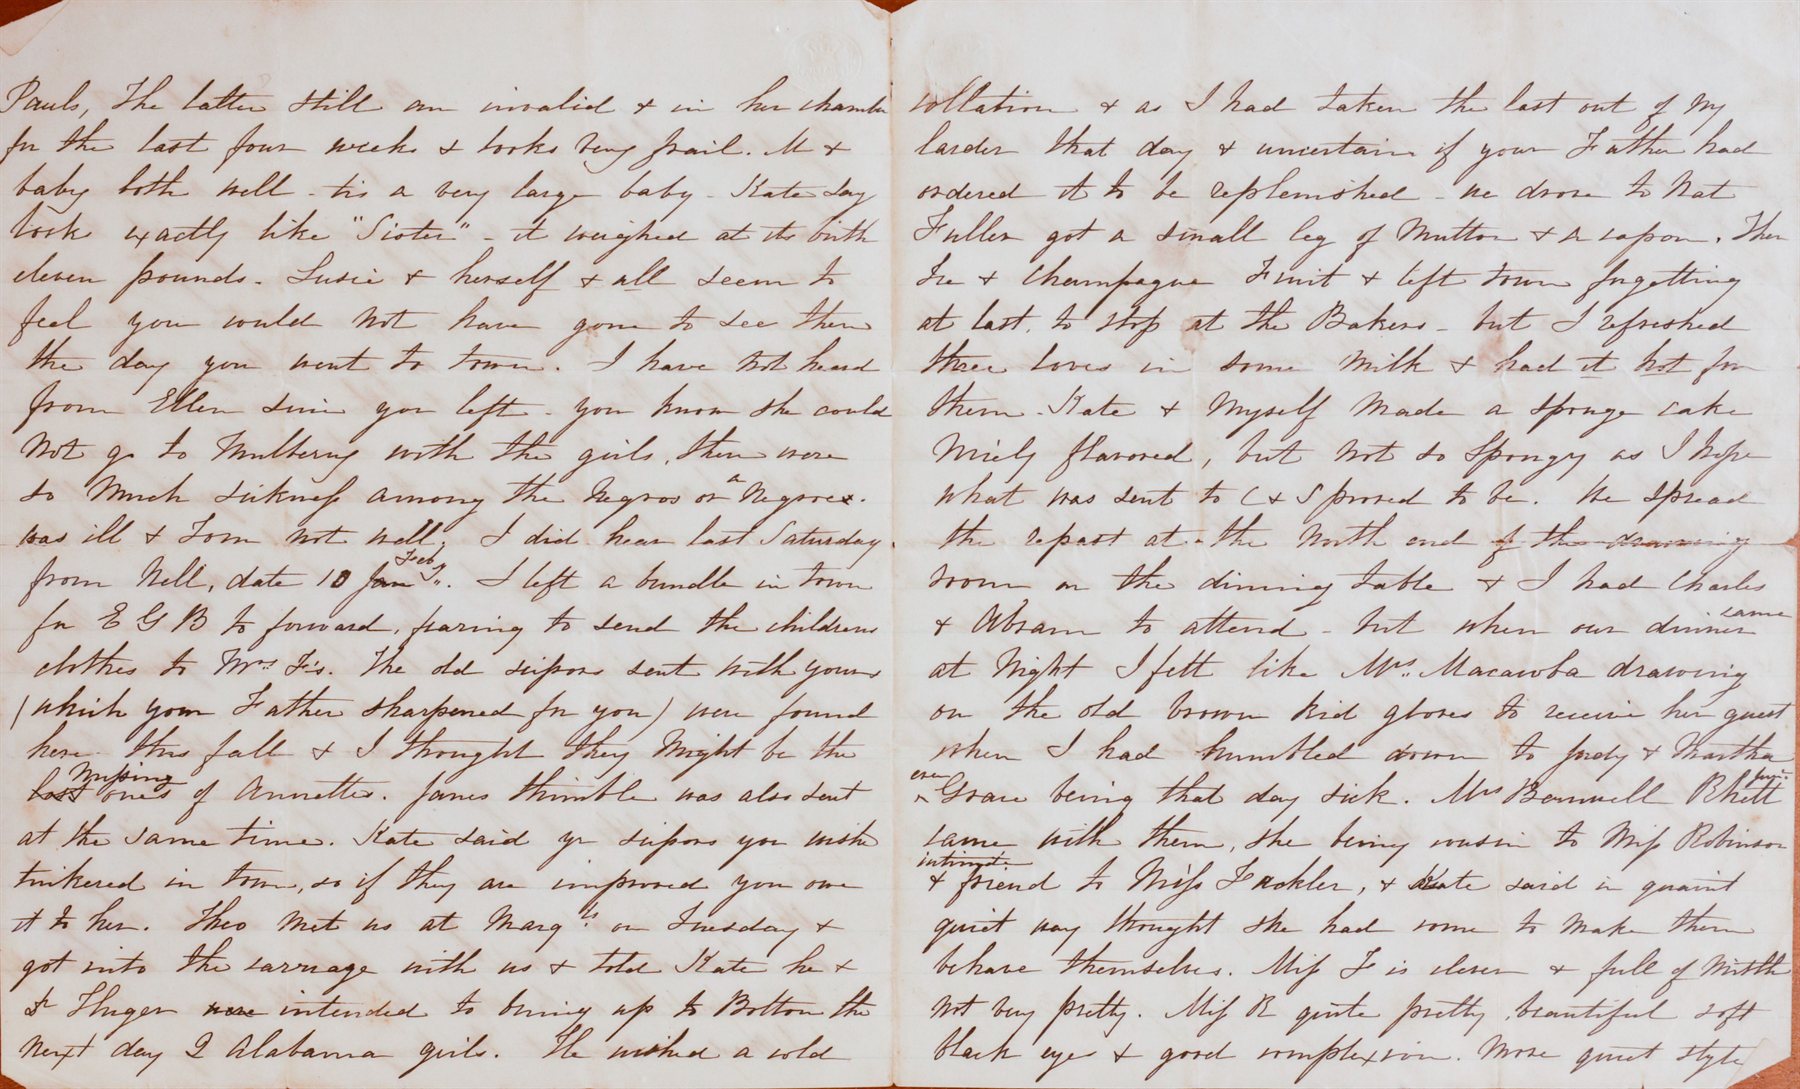 Pauls, The latter still an invalid & in her chamber
for the last four weeks & looks very frail. M &
baby both well - tis a very large baby - Kate say
look exactly like "Sister" - it weighed at its birth
eleven pounds. Susie & herself & all seem to
feel you would not have gone to see them
the day you went to town. I have not heard
from Ellen since you left - you know she could
not go to Mulberry with the girls, there were
so much sickness among the Negros or a Negroes.
was ill & Tom not well, I did hear last Saturday
from Nell, date 10 Jan Feby. I left a bundle in town
for E G B to forward, fearing to send the childrens
clothes to Mrs F's. The old scissors sent with yours
(which your Father sharpened for you) were found
here this fall & I thought they might be the
lost missing ones of Annettes. Janes thimble was also sent
at the same time. Kate said yr scissors you wish
tinkered in town, so if they are improved you owe
it to her. Theo met us at Marg.ts on Tuesday &
got into the carriage with us & told Kate he &
Dr Huger were intended to bring up to Bolton the
next day 2 Alabama girls. He wished a cold
collation & as I had taken the last out of my
larder that day & uncertain if your Father had
ordered it to be replenished - we drove to Nat
Fuller got a small leg of Mutton & a capon. Then
Ice & Champagne Fruit & left town forgetting
at last, to stop at the Bakers - but I refreshed
three loves in some milk & had it hot for
them. Kate & myself made a sponge cake
nicely flavored, but not so spongy as I hope
what was sent to C & S proved to be. We spread
the repast at the North end of the drawing
room on the dinning table & I had Charles
& Abram to attend - but when our dinner came
at Night I felt like Mrs. Macawba drawing
on the old brown kid gloves to receive her guest
when I had humbled down to Judy & Martha
even Grace being that day sick. Mrs Barnwell Rhett junr.
came with them, she being cousin to Miss Robinson
& intimate friend to Miss Fackler, & Kate said in quaint
quiet way thought she had come to make them
behave themselves. Miss F is clever & full of mirth
not very pretty. Miss R quite pretty, beautiful soft
black eyes & good complexion. More quiet style